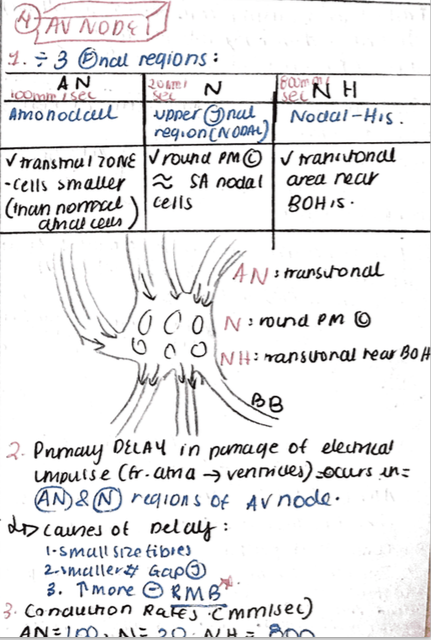 4 AV NODE!
1. ÷ 3 Ⓕnal regions:
AN
100mm/sec
N
20mm/sec
NH
800mm/sec
Atrionodal
upper Ⓙnal region (NODAL)
Nodal-His.
✓ transtnal ZONE
- cells smaller
(than normal atrial cells)
✓ round PM Ⓒ
≈ SA nodal
cells
✓ transitional
area near
BOHis.
AN: transitional
N: round PM Ⓒ
NH: transitional near BOH
BB
2. Primary DELAY in passage of electrical
impulse (fr. atria → ventricles) occurs in=
(AN) & (N) regions of AV node.
Causes of Delay:
1. small size fibres
2. smaller # Gap Ⓙ
3. ↑ more ⊖ RMB*
3. Conduction Rates (mm/sec)
AN=100, N=20, NH=800